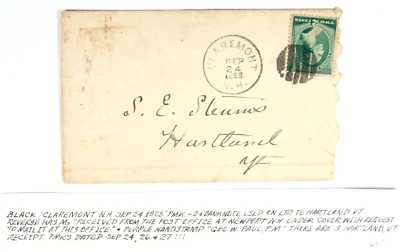 CLAREMONT
SEP
24
1888
N.H.
S. E.
Hartland
Vt
BLACK "CLAREMONT N.H. SEP 24 1888" PMK - 2¢ BANKNOTE USED ON LTR TO HARTLAND VT.
REVERSE HAS MS "RECEIVED FROM THE POST OFFICE AT NEWPORT NH UNDER COVER WITH REQUEST
TO MAIL IT AT THIS OFFICE" & PURPLE HANDSTAMP "GEO W. PAUL, P.M." THERE ARE 3 HARTLAND, VT
RECEIPT PMKS DATED SEP 24, 26 & 27 !!!